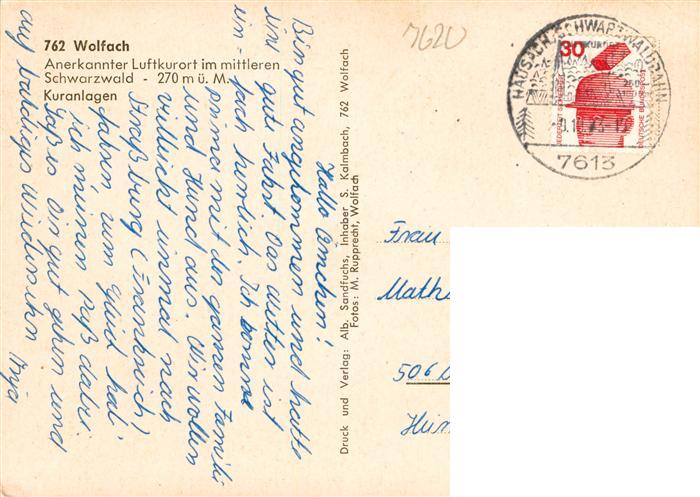 762 Wolfach
Anerkannter Luftkurort im mittleren
Schwarzwald - 270 m ü. M.
Kuranlagen
7620
HAUSACH, SCHWARZWALDBAHN
7613
30
JEDERZEIT SICHERHEIT
DEUTSCHE BUNDESPOST
Hallo Ömchen!
Bin gut angekommen und hatte
eine gute Fahrt. Das Wetter ist
ein-
fach herrlich. Ich komme
prima mit der ganzen Familie
und Hund aus. Wir wollen
vielleicht einmal nach
Straßburg (Frankreich)
fahren, zum Glück hab
ich meinen Paß dabei.
Laß es Dir gut gehen und
auf baldiges Wiedersehn
Druck und Verlag: Alb. Sandfuchs, Inhaber S. Kalmbach, 762 Wolfach
Fotos: M. Rupprecht, Wolfach
Frau
Mathe
506